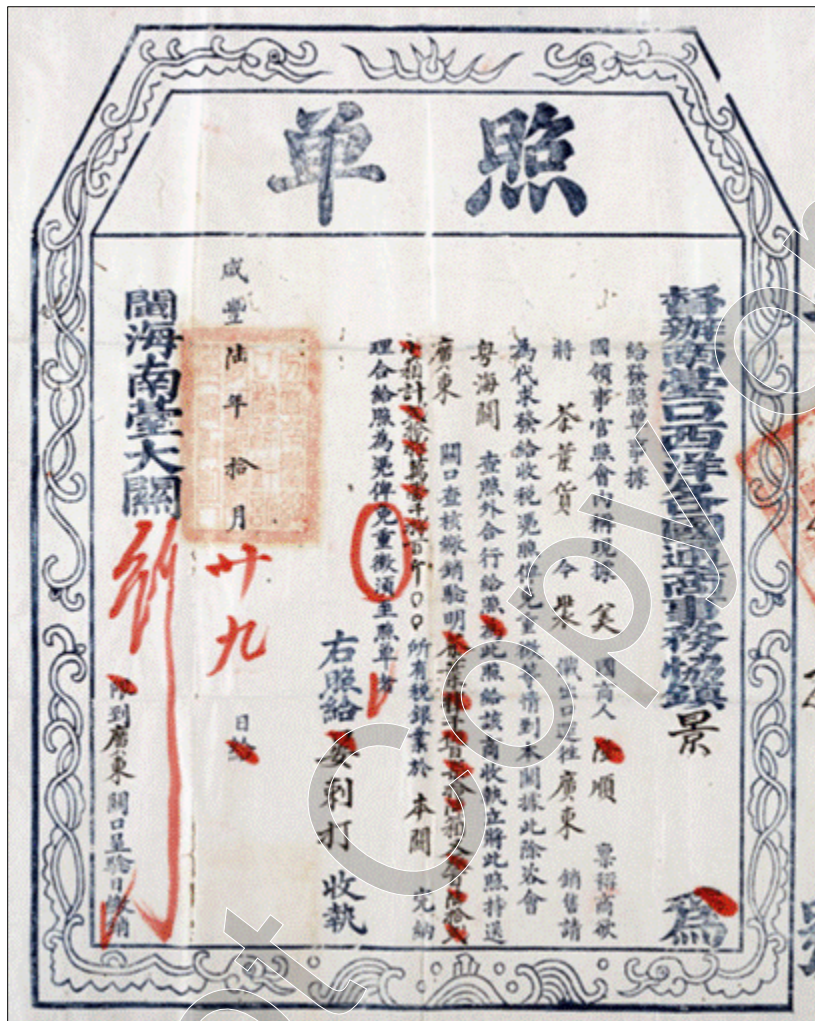 照單
督辦南臺口西洋各國通商事務協鎮景 為
給發照單事據
國領事官照會內稱現據 英 國商人 隆順 稟稱商欲
將 茶葉貨 今裝 出口運往 廣東 銷售請
為代求發給收稅憑照俾免重徵等情到本關據此除咨會
粵海關 查照外合行給照為此照給該商收執立將此照持送
廣東 關口查核繳銷驗明
所有稅銀業於 本關 完納
理合給照為憑俾免重徵須至照單者
右照給 剌打 收執
咸豐陸年拾月廿九日給
閩海南臺大關
到廣東關口呈驗日繳銷
Not Copy or